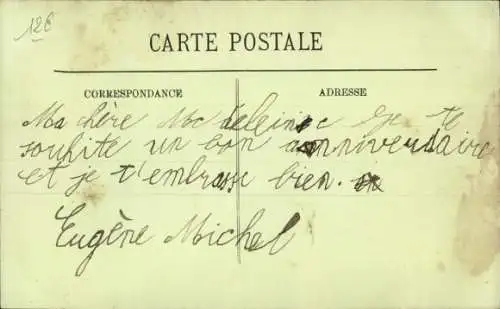 126
CARTE POSTALE
CORRESPONDANCE
ADRESSE
Ma chère Madeleine Je te
souhite un bon anniversaire
et je t'embrasse bien.
Eugène Michel